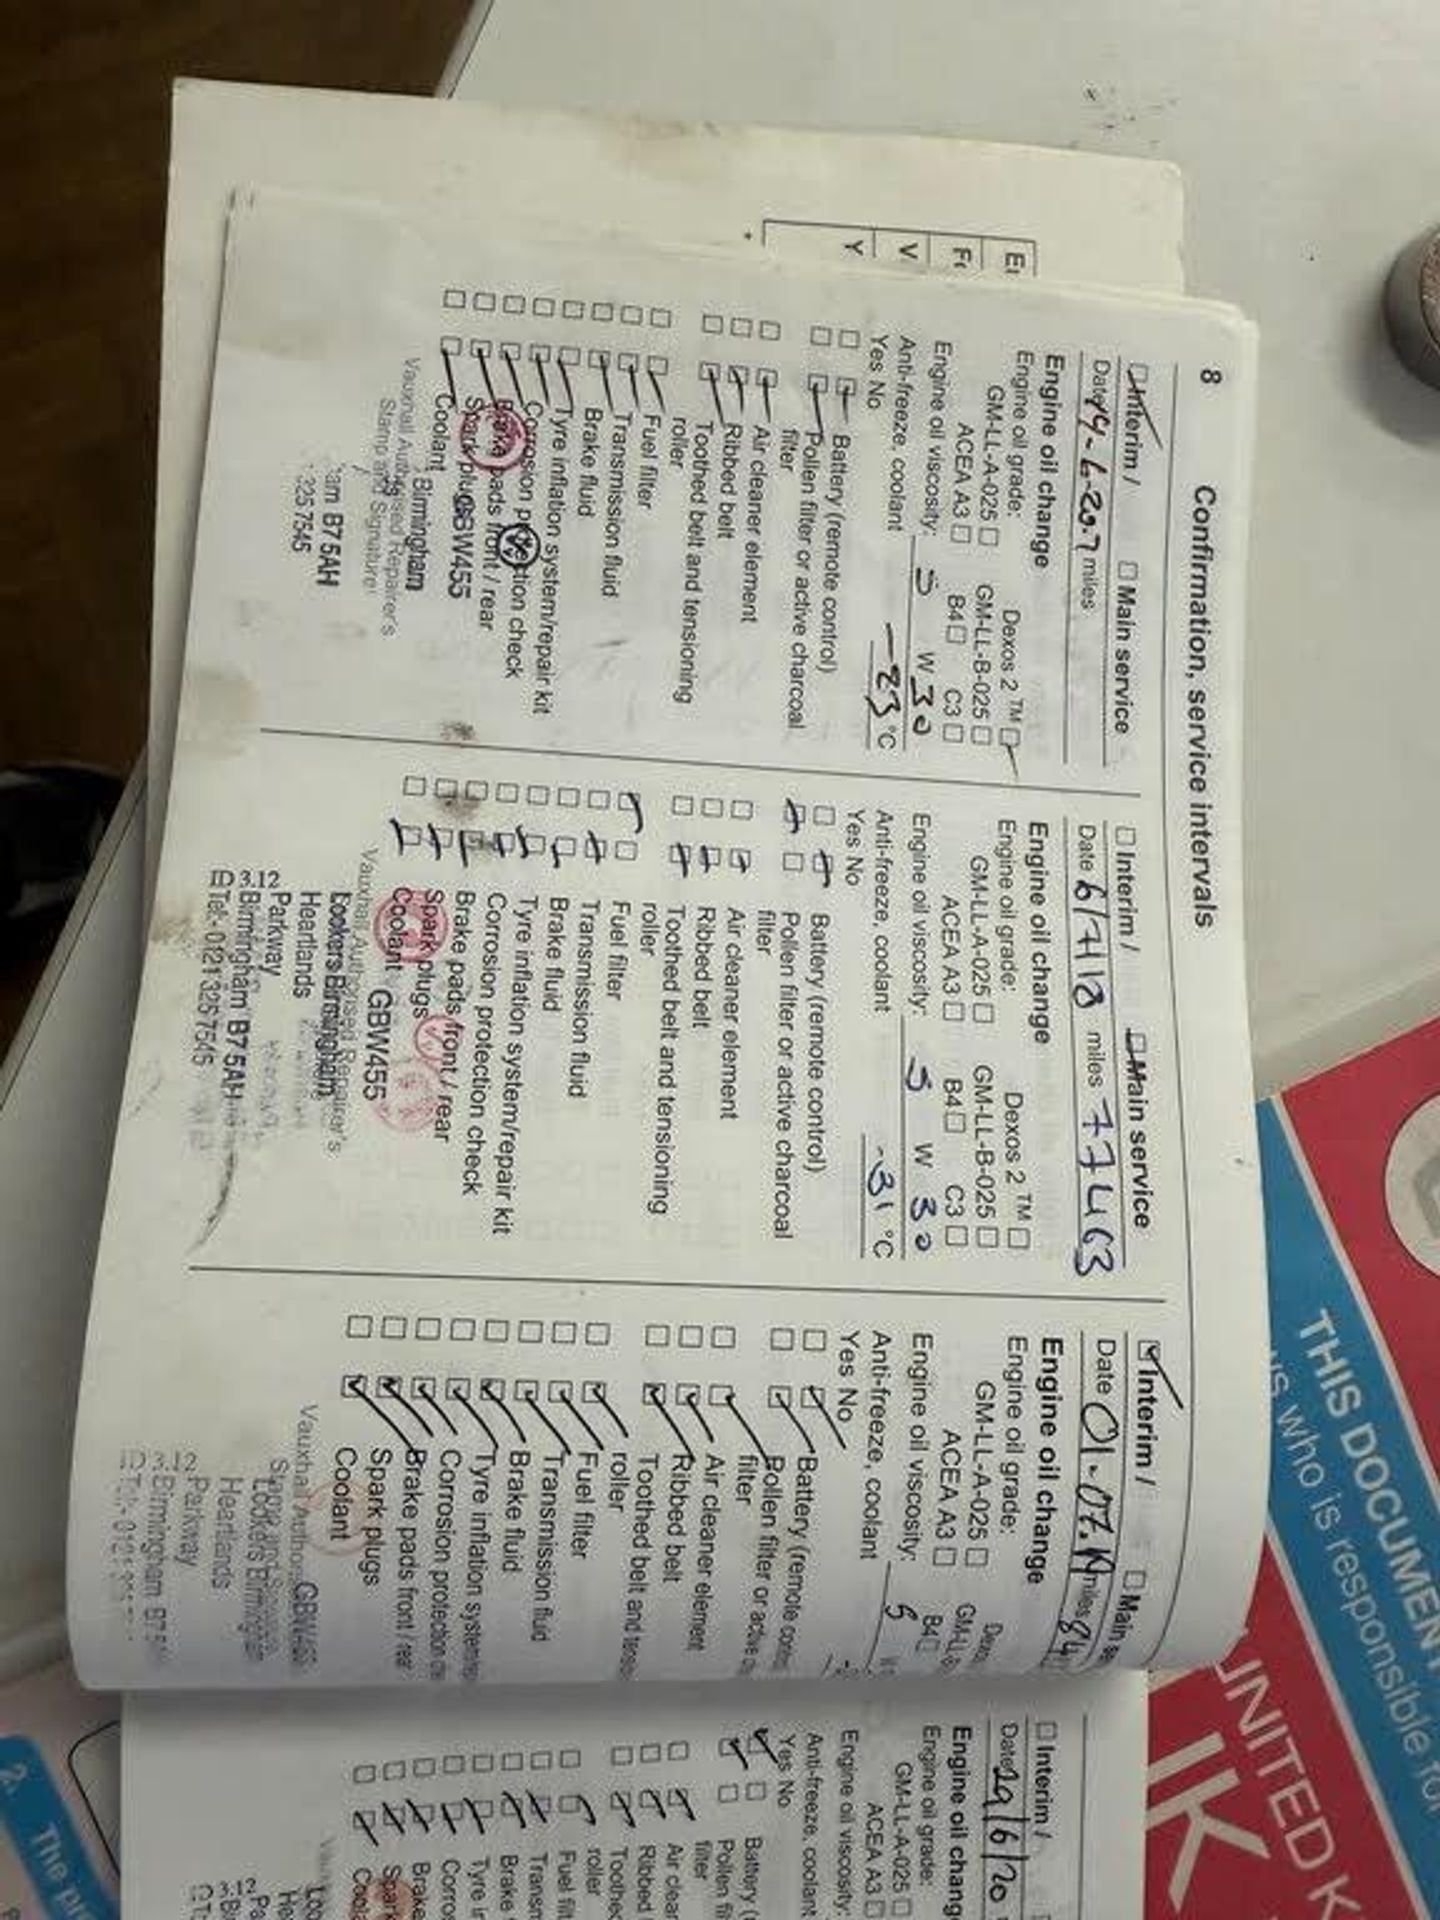 8 Confirmation, service intervals
Interim / Main service
Date 14-6-20.7 miles
Engine oil change
Engine oil grade: Dexos 2 TM
GM-LL-A-025 GM-LL-B-025
ACEA A3 B4 C3
Engine oil viscosity: 5 W 30
Anti-freeze, coolant -23 °C
Yes No
Battery (remote control)
Pollen filter or active charcoal
filter
Air cleaner element
Ribbed belt
Toothed belt and tensioning
roller
Fuel filter
Transmission fluid
Brake fluid
Tyre inflation system/repair kit
Corrosion protection check
Brake pads front / rear
Spark plugs GBW455
Coolant
Birmingham
Vauxhall Authorised Repairer's
Stamp and Signature
B7 5AH
325 7545
Interim / Main service
Date 6/7/18 miles 77463
Engine oil change
Engine oil grade: Dexos 2 TM
GM-LL-A-025 GM-LL-B-025
ACEA A3 B4 C3
Engine oil viscosity: 5 W 30
Anti-freeze, coolant -31 °C
Yes No
Battery (remote control)
Pollen filter or active charcoal
filter
Air cleaner element
Ribbed belt
Toothed belt and tensioning
roller
Fuel filter
Transmission fluid
Brake fluid
Tyre inflation system/repair kit
Corrosion protection check
Brake pads front / rear
Spark plugs
Coolant GBW455
Vauxhall Authorised Repairer's
Lookers Birmingham
Heartlands
Parkway
3.12
Birmingham B7 5AH
Tel: 0121 325 7545
Interim / Main
Date 01.07.19 miles 84
Engine oil change
Engine oil grade:
GM-LL-A-025
ACEA A3 B4
Engine oil viscosity: 5
Anti-freeze, coolant
Yes No
Battery (remote
Pollen filter or active
filter
Air cleaner element
Ribbed belt
Toothed belt and
roller
Fuel filter
Transmission fluid
Brake fluid
Tyre inflation
Corrosion protection
Brake pads front / rear
Spark plugs
Coolant
Vauxhall
Lookers Birmingham
Heartlands
Parkway
3.12
Birmingham B7
Interim /
Date 29/6/20
Engine oil change
Engine oil grade:
GM-LL-A-025
ACEA A3
Engine oil viscosity:
Anti-freeze, coolant
Yes No
Battery
Pollen
filter
Air
Ribbed
roller
Fuel
Brake
Tyre
Brake
THIS DOCUMENT
who is responsible for
UNITED K
2. The